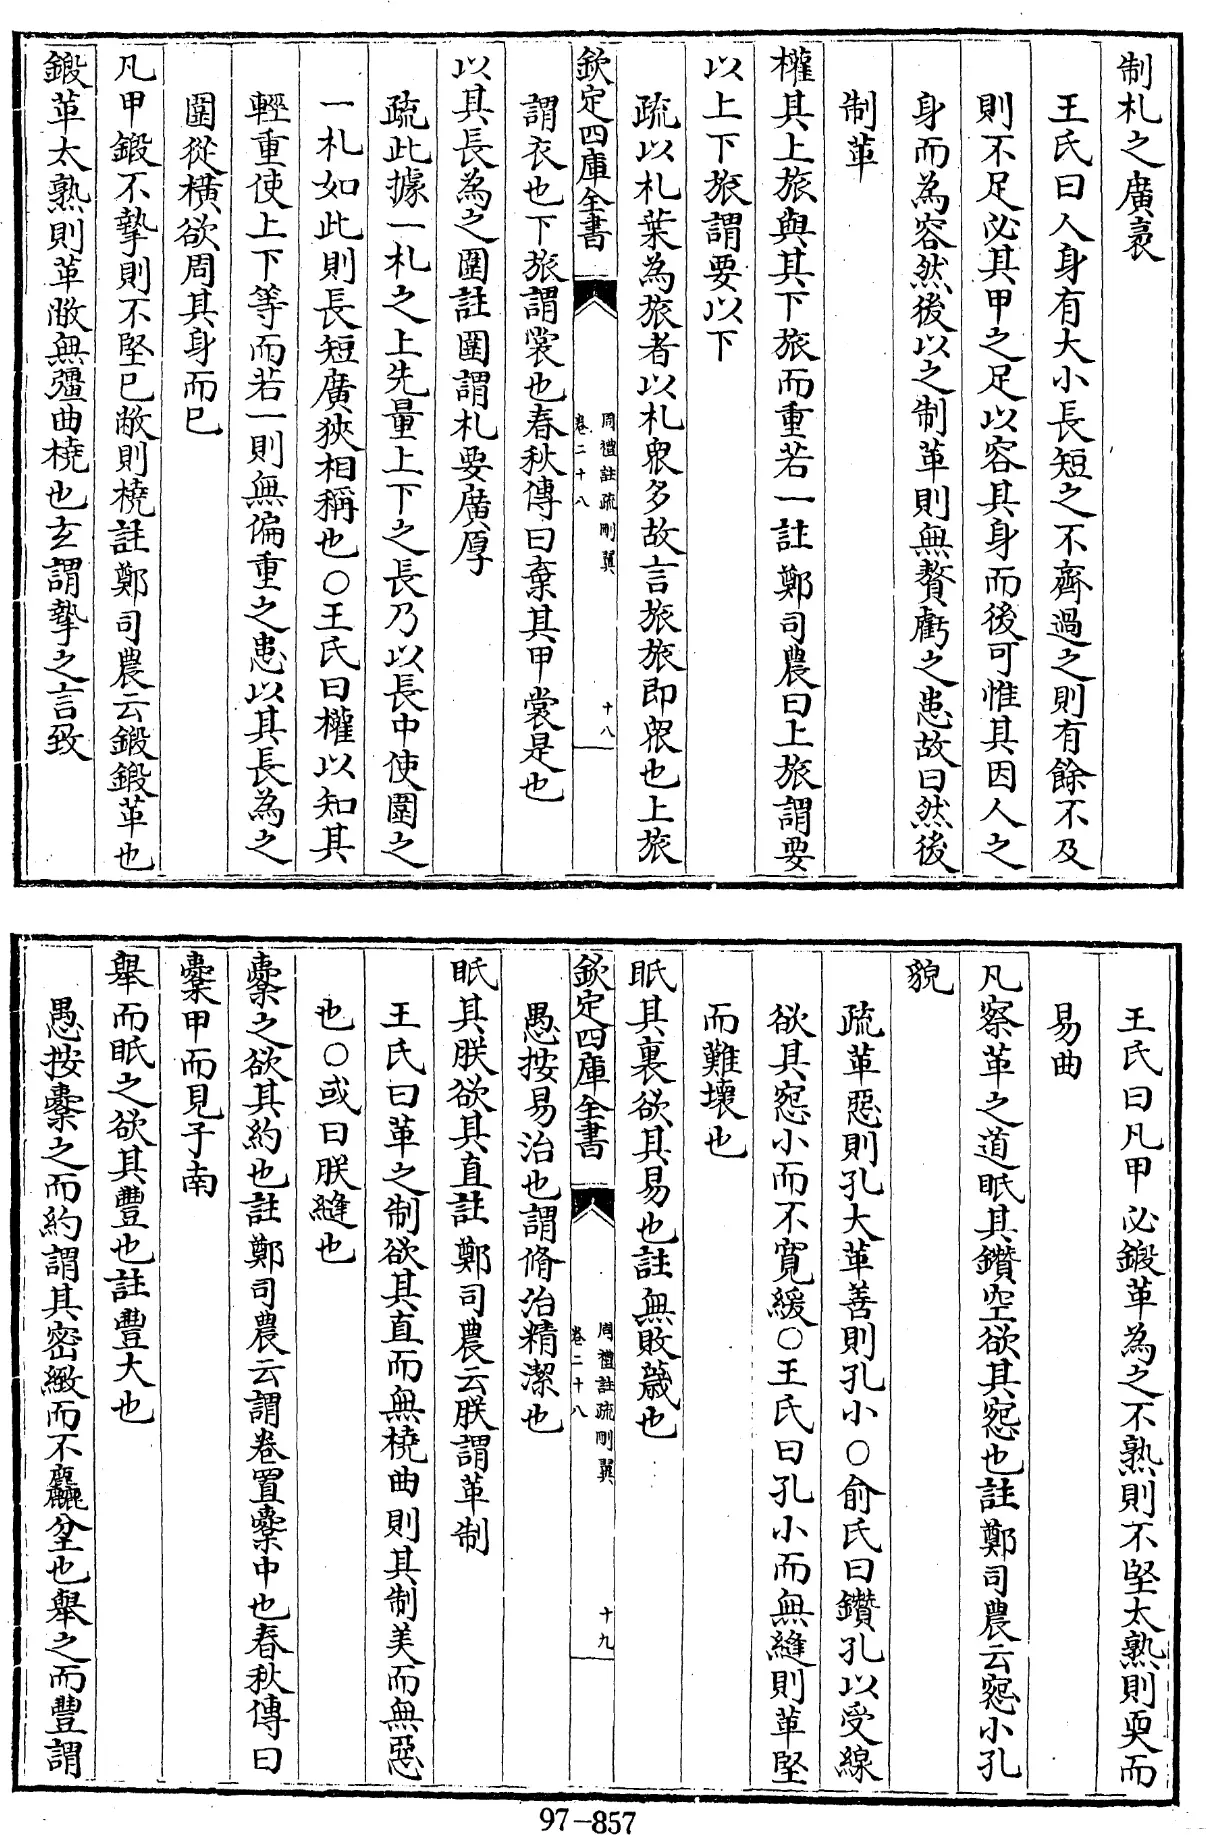 制札之廣袤
王氏曰人身有大小長短之不齊過之則有餘不及
則不足必其甲之足以容其身而後可惟其因人之
身而為容然後以之制革則無贅虧之患故曰然後
制革
權其上旅與其下旅而重若一註鄭司農曰上旅謂要
以上下旅謂要以下
疏以札葉為旅者以札衆多故言旅旅即衆也上旅
欽定四庫全書
周禮註疏刪翼
卷二十八
十八
謂衣也下旅謂裳也春秋傳曰棄其甲裳是也
以其長為之圍註圍謂札要廣厚
疏此據一札之上先量上下之長乃以長中使圍之
一札如此則長短廣狹相稱也○王氏曰權以知其
輕重使上下等而若一則無偏重之患以其長為之
圍從橫欲周其身而已
凡甲鍛不摯則不堅已敝則橈註鄭司農云鍛鍛革也
鍛革太熟則革敝無彊曲橈也玄謂摯之言致
王氏曰凡甲必鍛革為之不熟則不堅太熟則耎而
易曲
凡察革之道眡其鑽空欲其窓也註鄭司農云窓小孔
貌
疏革惡則孔大革善則孔小○俞氏曰鑽孔以受線
欲其窓小而不寛緩○王氏曰孔小而無縫則革堅
而難壞也
眡其裏欲其易也註無敗薉也
欽定四庫全書
周禮註疏刪翼
卷二十八
十九
愚按易治也謂脩治精潔也
眡其朕欲其直註鄭司農云朕謂革制
王氏曰革之制欲其直而無橈曲則其制美而無惡
也○或曰朕縫也
櫜之欲其約也註鄭司農云謂卷置櫜中也春秋傳曰
櫜甲而見子南
舉而眡之欲其豐也註豐大也
愚按櫜之而約謂其密緻而不麤坌也舉之而豐謂
97-857